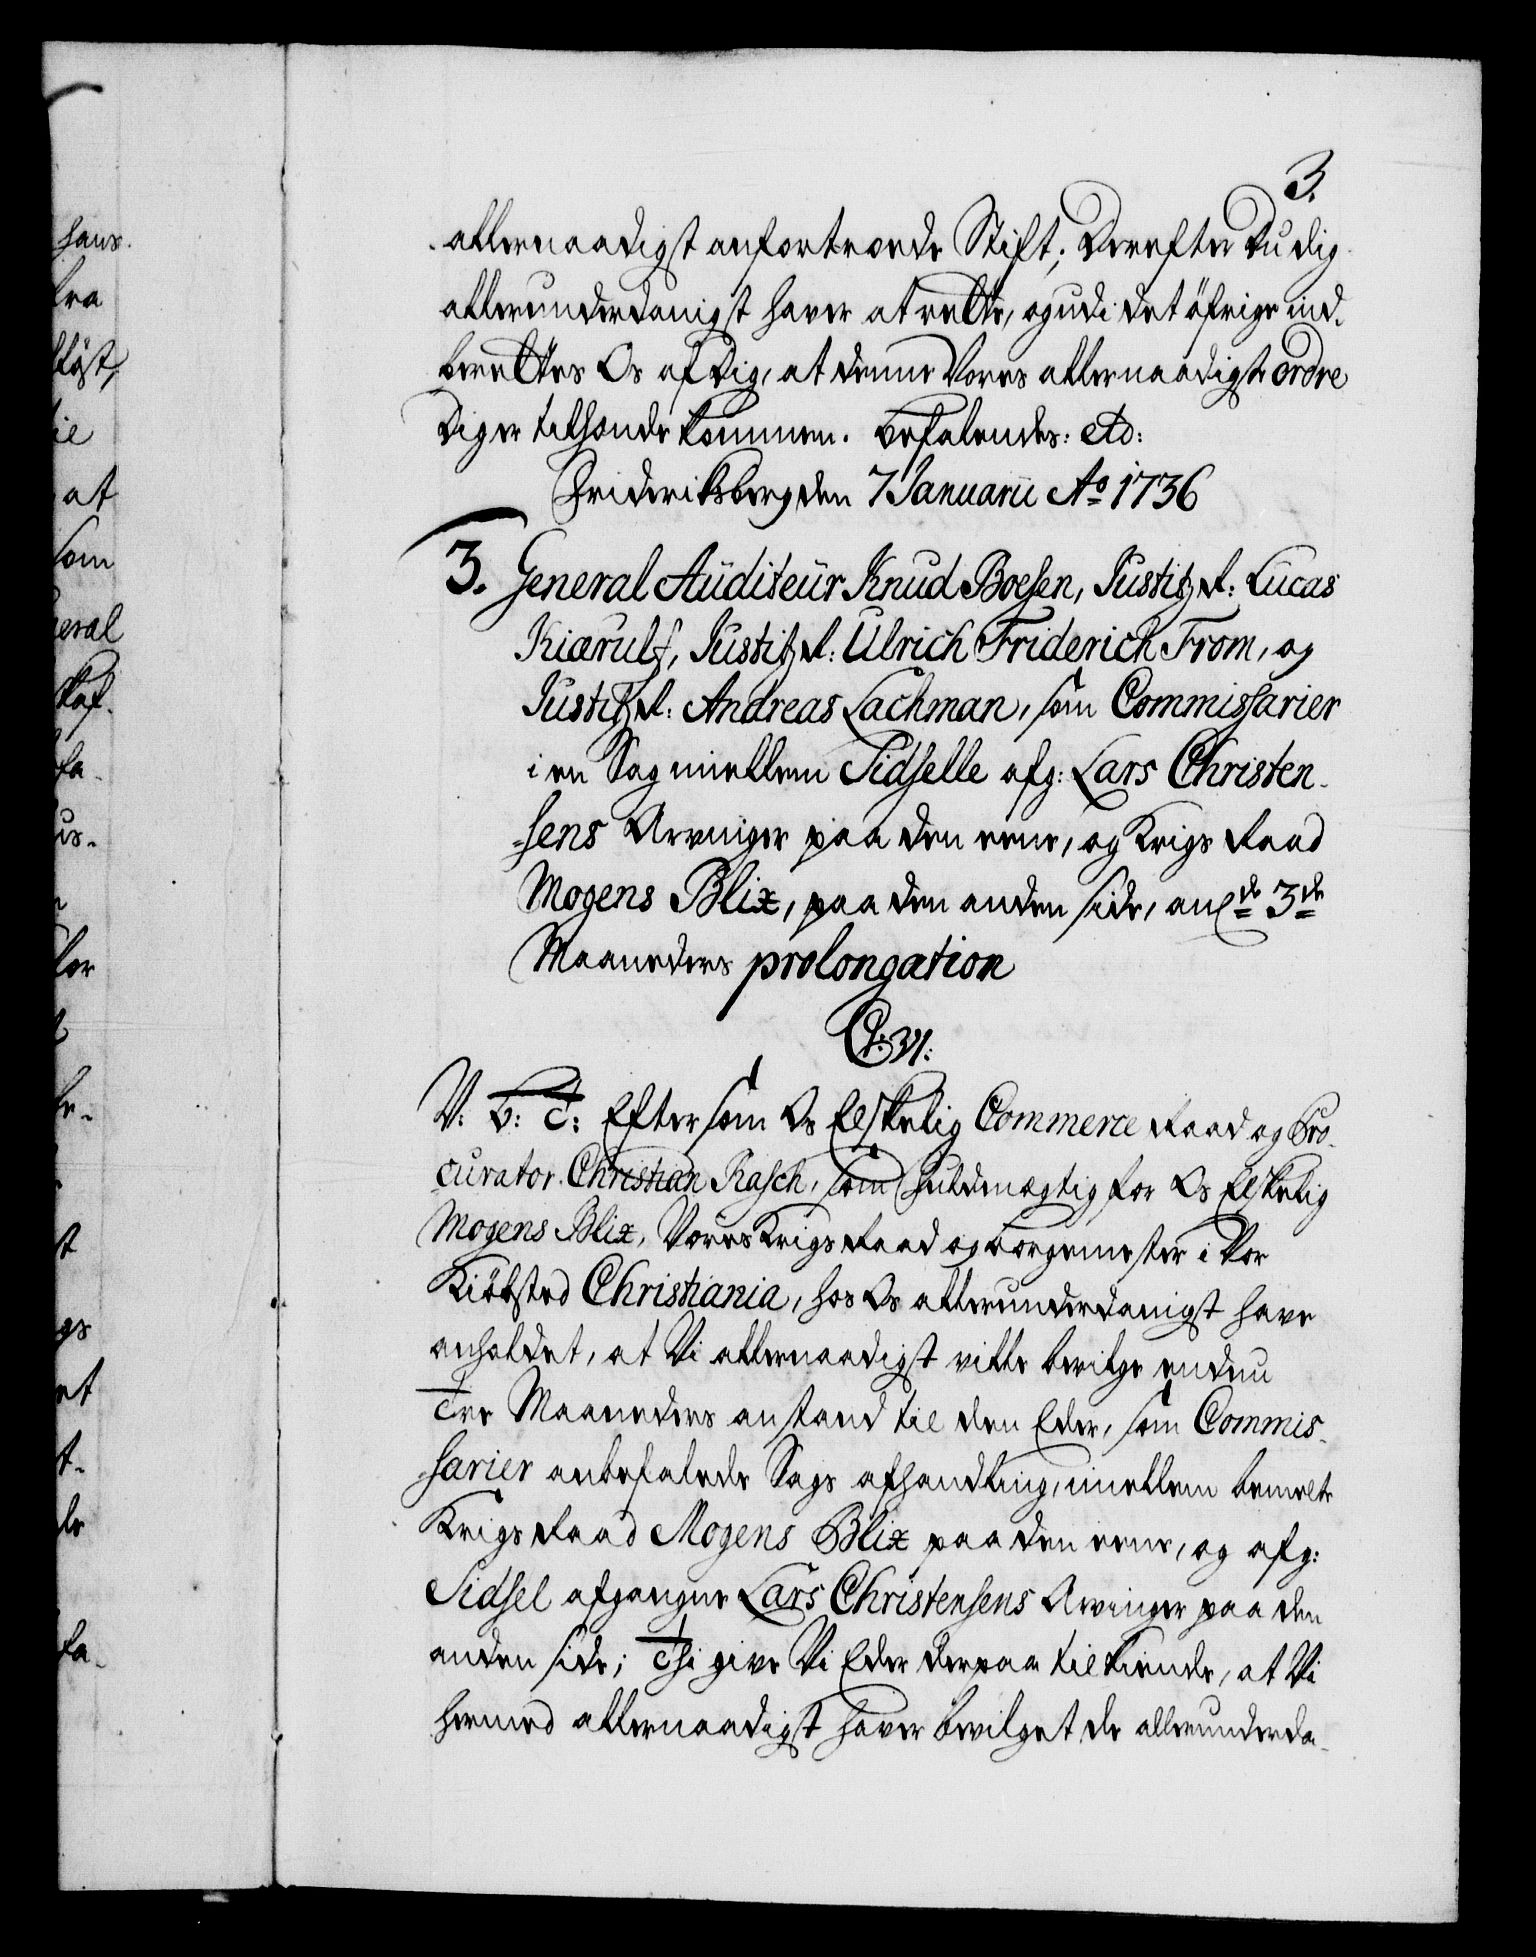 3.
allernaadigst anfortroede Stift; Derefter du dig
allerunderdanigst haver at rette, og udi det öfrige ind-
berettes Os af dig, at denne Vores allernaadigste ordre
dig er tilhænde kommen. Befalendes: etc:
Frideriksberg den 7 Januarii Ao 1736
3. General Auditeur Knud Boesen, Justitz R: Lucas
Kiærulf, Justitz R: Ulrich Friderich From, og
Justitz R: Andreas Lachman, som Commissarier
i en Sag mellem Sidselle afg: Lars Christen-
sens Arvinger paa den eene, og Krigs Raad
Mogens Blix, paa den anden side, 3de
Maaneders prolongation
C: VI:
V: G: T: Eftersom Os Elskelig Commerce Raad og Pro-
curator Christian Rasch, som fuldmægtig for Os Elskelig
Mogens Blix, Vores Krigs Raad og borgemester i Vor
Kiöbsted Christiania, hos Os allerunderdanigst have
anholdet, at Vi allernaadigst ville bevilge endnu
Tre Maaneders anstand til den Eder, som Commis-
sarier anbefalede Sags afhandling, imellem bemelte
Krigs Raad Mogens Blix paa den eene, og afg:
Sidsel afgangne Lars Christensens Arvinger paa den
anden side; Thi give Vi Eder derpaa tilkiende, at Vi
hermed allernaadigst haver bevilget de allerunderda-
hans
fra
löst,
til
at
som
neral
skaf-
fa-
us-
for
st
gs
et
t-
de
fa-